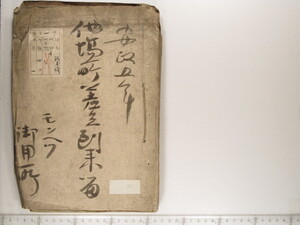 安政五年
他場所差立到来留
モンベツ
御用所